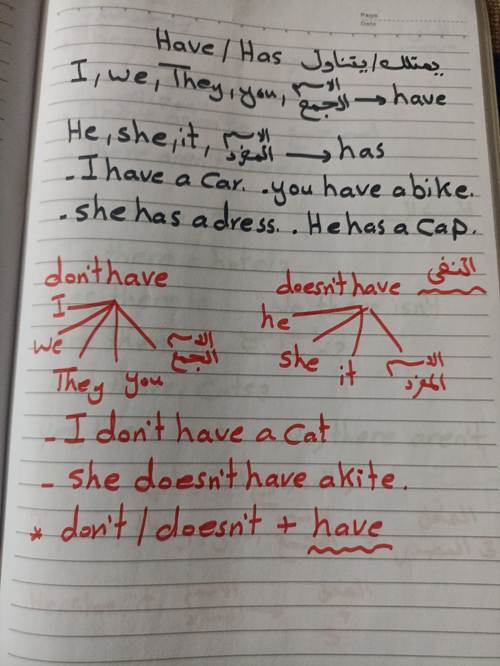 Page:
Date:
Have / Has يمتلك / يتناول
I, we, They, you, الاسم الجمع → have
He, she, it, الاسم المفرد → has
- I have a car. . you have a bike.
. she has a dress. . He has a cap.
don't have
doesn't have النفى
I
we
They
you
الاسم الجمع
he
she
it
الاسم المفرد
- I don't have a cat
- she doesn't have a kite.
* don't / doesn't + have